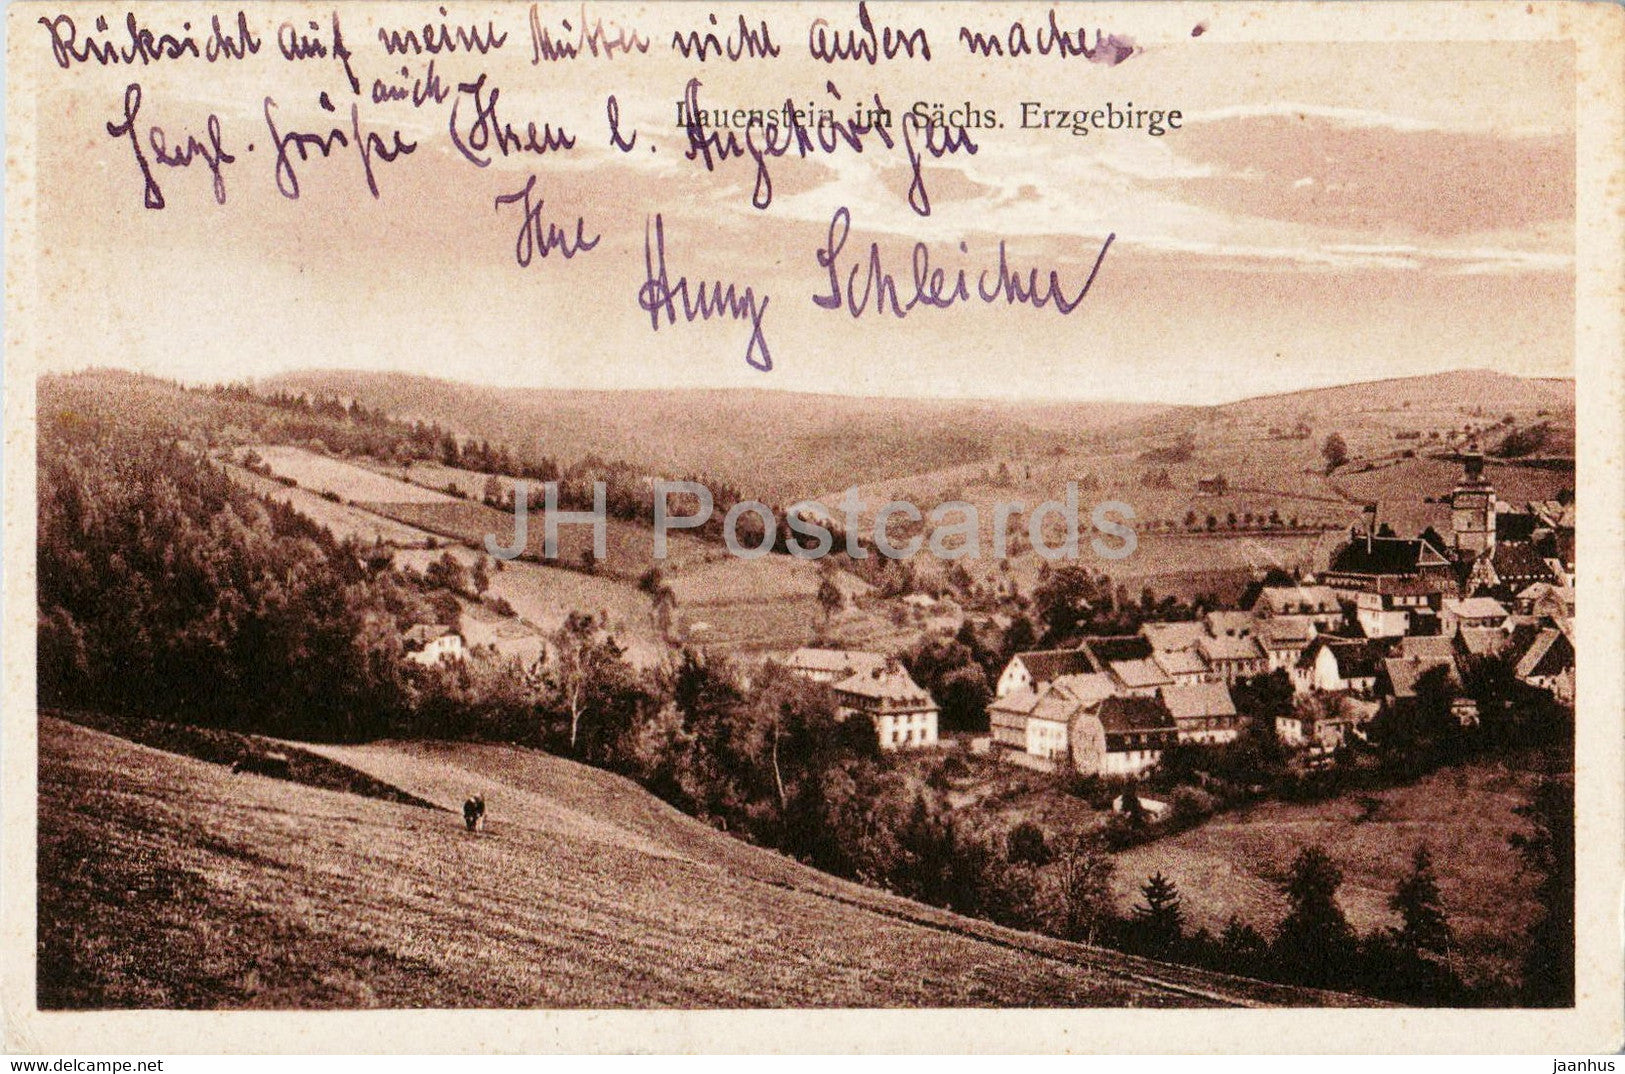 Rücksicht auf meine Mutter nicht anders machen.
auch
Herzl. Grüße Ihren l. Angehörigen
Lauenstein im Sächs. Erzgebirge
Ihre
Schleicher
JH Postcards
www.delcampe.net
jaanhus